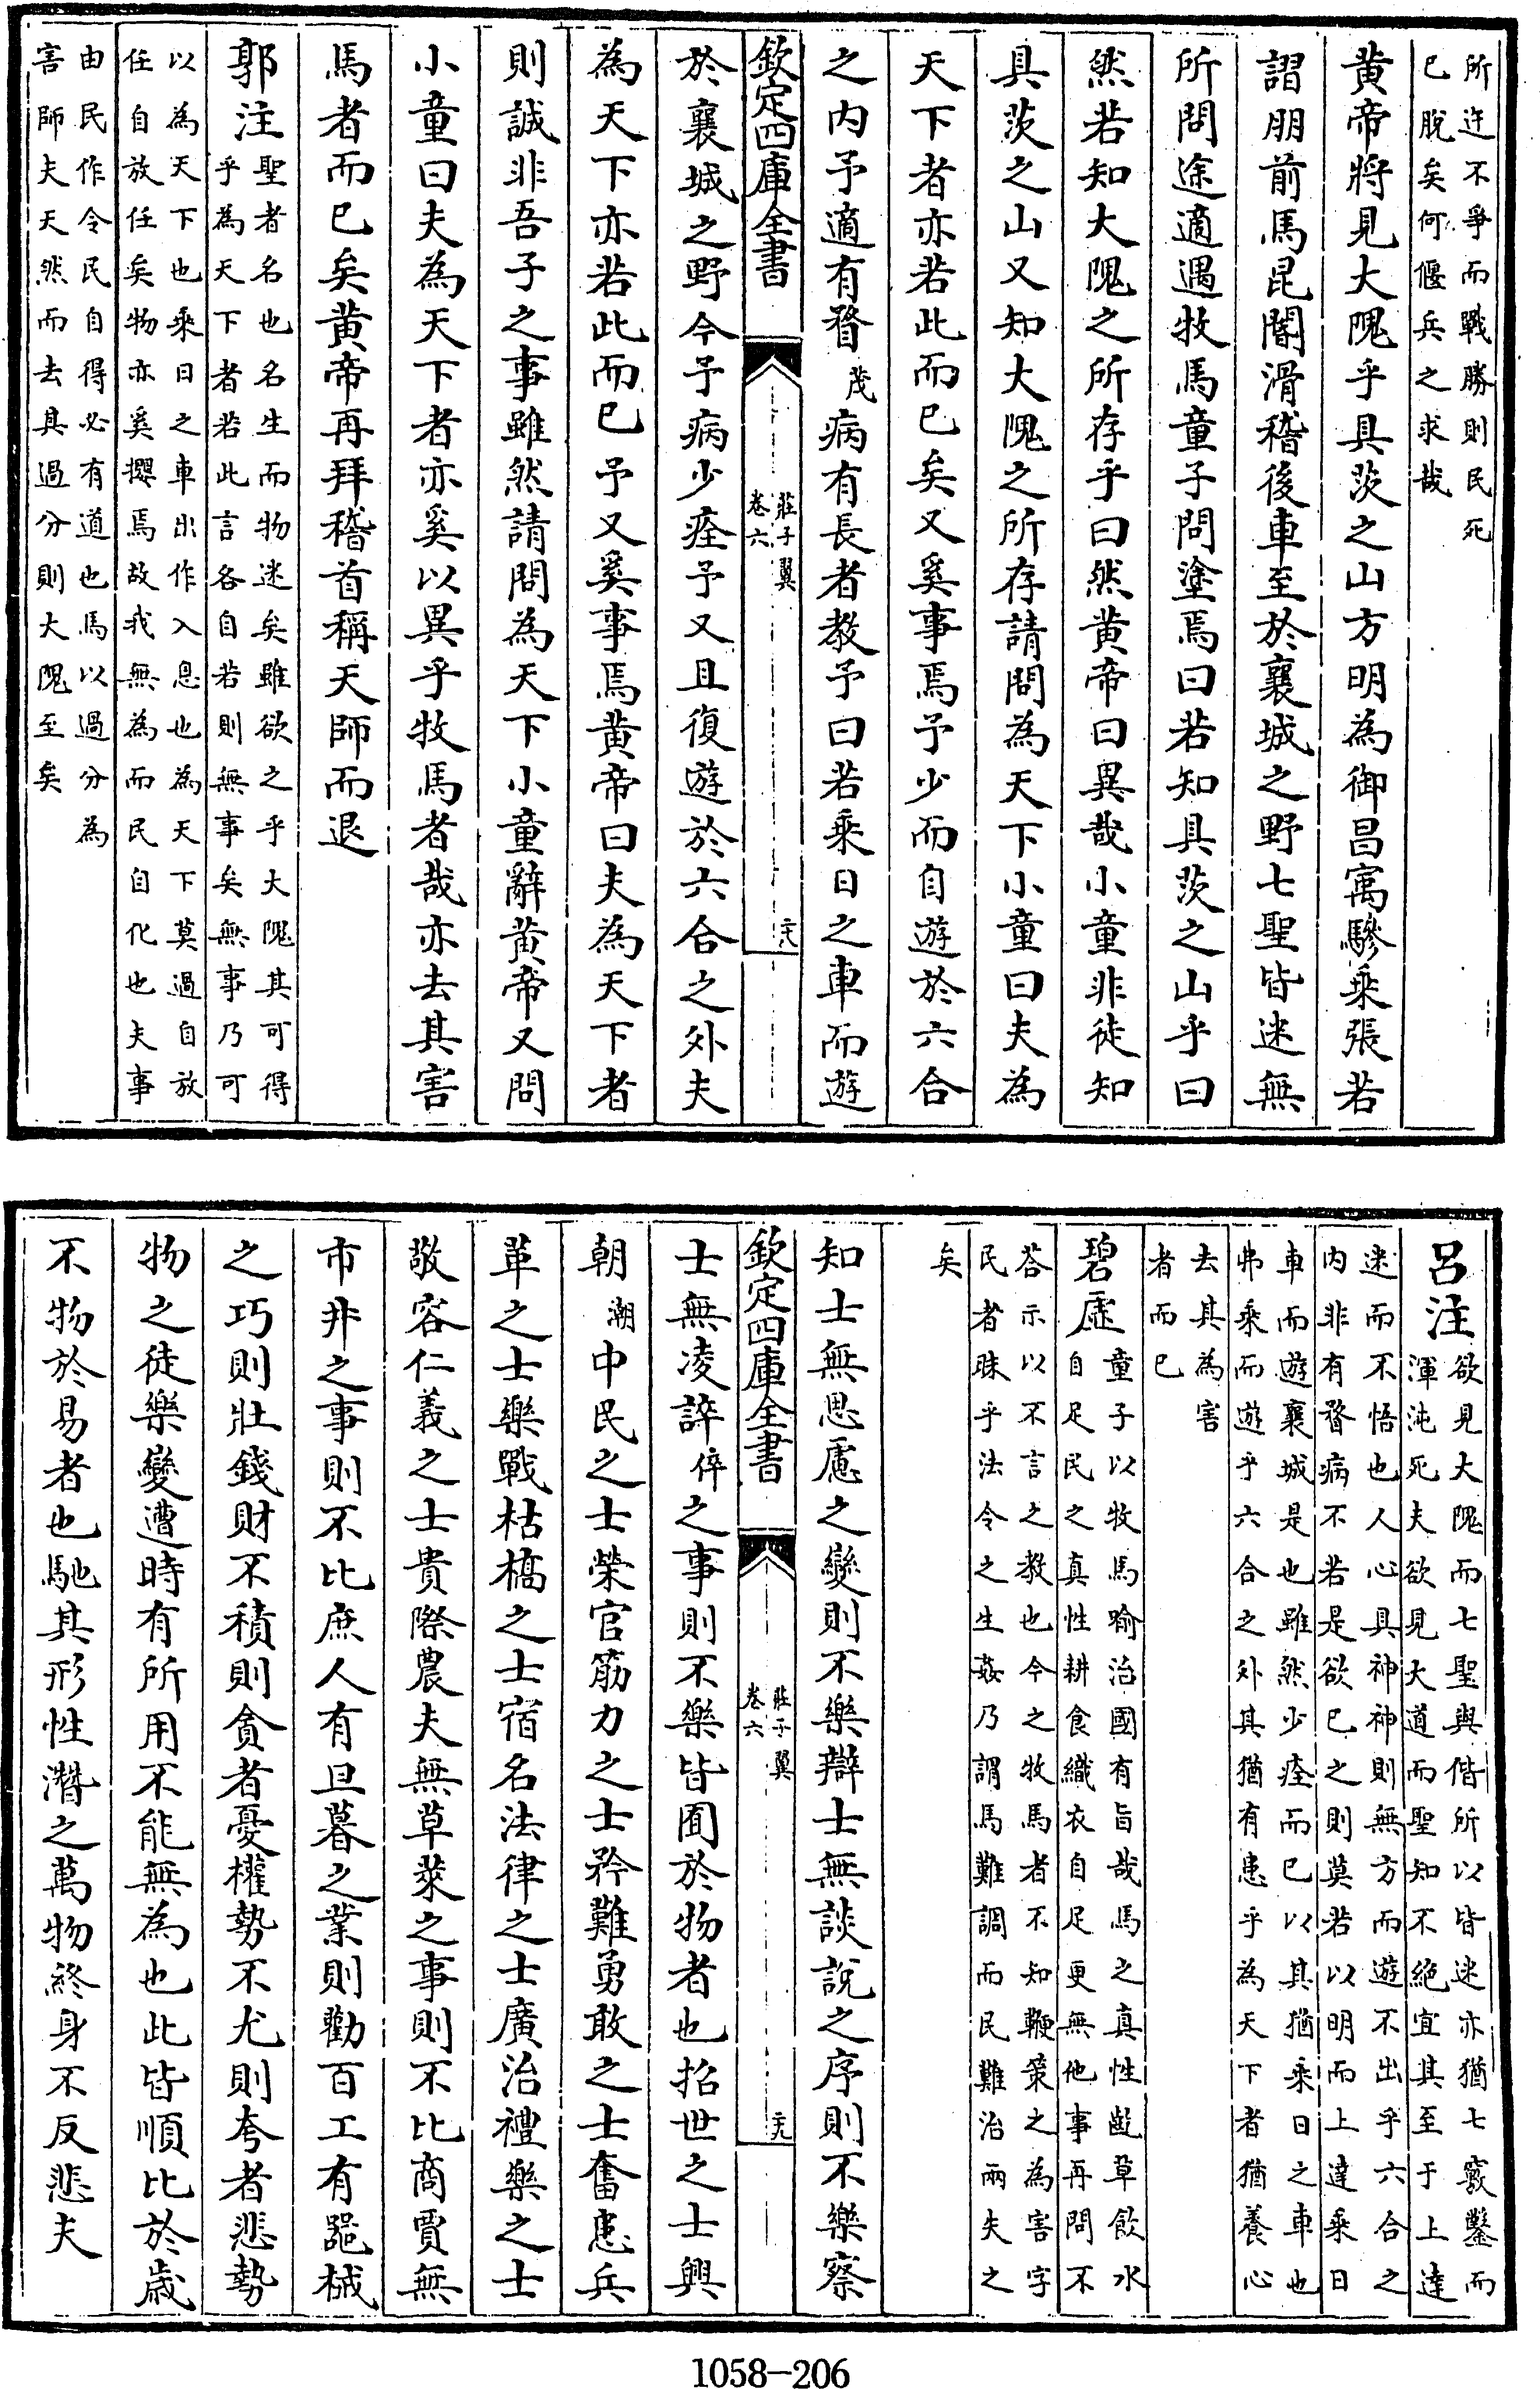 所許不爭而戰勝則民死
已脫矣何偃兵之求哉
黄帝將見大隗乎具茨之山方明為御昌㝢驂乘張若
謵朋前馬昆閽滑稽後車至於襄城之野七聖皆迷無
所問途適遇牧馬童子問塗焉曰若知具茨之山乎曰
然若知大隗之所存乎曰然黄帝曰異哉小童非徒知
具茨之山又知大隗之所存請問為天下小童曰夫為
天下者亦若此而已矣又奚事焉予少而自遊於六合
之内予適有瞀茂病有長者教予曰若乘日之車而遊
欽定四庫全書
莊子翼
卷六
二十八
於襄城之野今予病少痊予又且復遊於六合之外夫
為天下亦若此而已予又奚事焉黄帝曰夫為天下者
則誠非吾子之事雖然請問為天下小童辭黄帝又問
小童曰夫為天下者亦奚以異乎牧馬者哉亦去其害
馬者而已矣黄帝再拜稽首稱天師而退
郭注
聖者名也名生而物迷矣雖欲之乎大隗其可得
乎為天下者若此言各自若則無事矣無事乃可
以為天下也乘日之車出作入息也為天下莫過自放
任自放任矣物亦奚攖焉故我無為而民自化也夫事
由民作令民自得必有道也馬以過分為
害師夫天然而去其過分則大隗至矣
吕注
欲見大隗而七聖與偕所以皆迷亦猶七竅鑿而
渾沌死夫欲見大道而聖知不絶宜其至于上達
迷而不悟也人心具神神則無方而遊不出乎六合之
内非有瞀病不若是欲已之則莫若以明而上達乘日
車而遊襄城是也雖然少痊而已以其猶乘日之車也
弗乘而遊乎六合之外其猶有患乎為天下者猶養心
去其為害
者而已
碧虛
童子以牧馬喻治國有旨哉馬之真性齕草飲水
自足民之真性耕食織衣自足更無他事再問不
荅示以不言之教也今之牧馬者不知鞭策之為害字
民者昧乎法令之生姦乃謂馬難調而民難治兩失之
矣
知士無思慮之變則不樂辯士無談說之序則不樂察
欽定四庫全書
莊子翼
卷六
二十九
士無凌誶倅之事則不樂皆囿於物者也招世之士興
朝潮中民之士榮官筋力之士矜難勇敢之士奮患兵
革之士樂戰枯槁之士宿名法律之士廣治禮樂之士
敬容仁義之士貴際農夫無草萊之事則不比商賈無
市井之事則不比庶人有旦暮之業則勸百工有器械
之巧則壯錢財不積則貪者憂權勢不尤則夸者悲勢
物之徒樂變遭時有所用不能無為也此皆順比於歲
不物於易者也馳其形性潛之萬物終身不反悲夫
1058-206